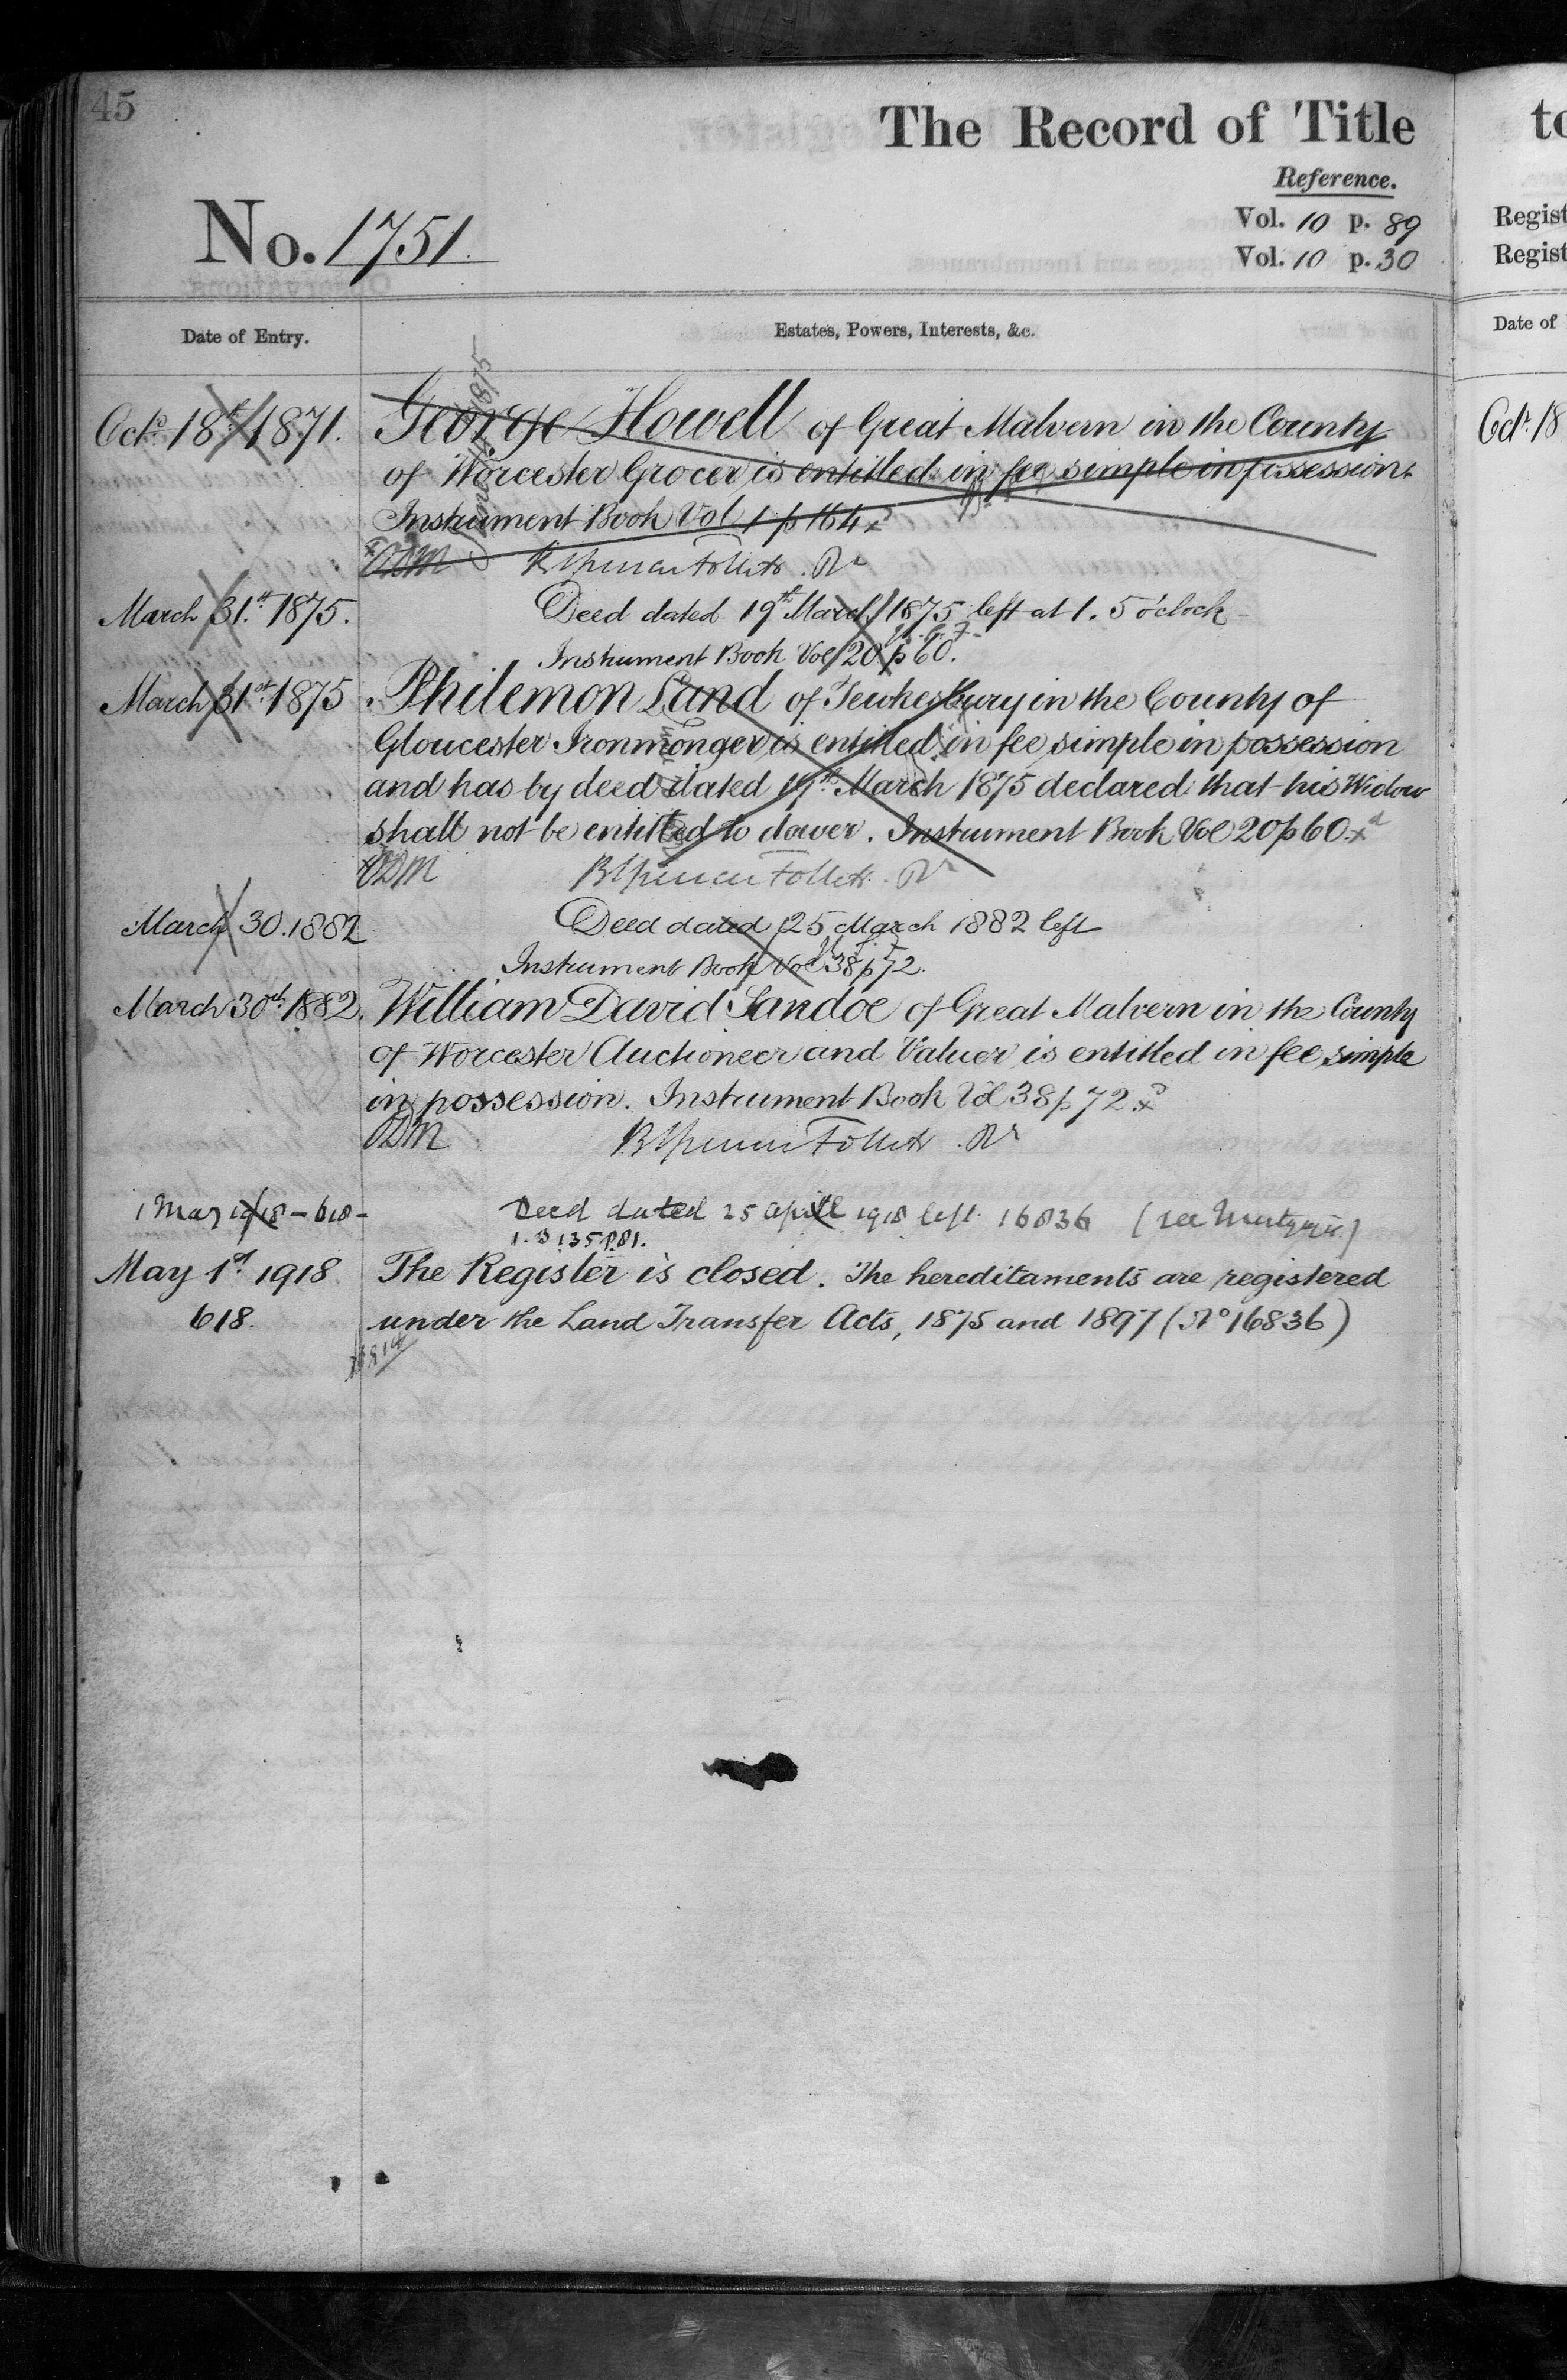 45
The Record of Title
Reference.
No. 1751.
Vol. 10 p. 89
Vol. 10 p. 30
Date of Entry.
Estates, Powers, Interests, &c.
Octr. 18th 1871.
George Howell of Great Malvern in the County
of Worcester Grocer is entitled in fee simple in possession.
Instrument Book Vol 1 p 164 x
ODM
March 31st. 1875.
Deed dated 19th March 1875 left at 1.5 o'clock
Instrument Book Vol 20 p 60.
March 31st 1875
Philemon Land of Tewkesbury in the County of
Gloucester Ironmonger is entitled in fee simple in possession
and has by deed dated 19th March 1875 declared that his Widow
shall not be entitled to dower. Instrument Book Vol 20 p 60. x
ODM
March 30. 1882
Deed dated 25 March 1882 left
Instrument Book Vol 38 p 72.
March 30th 1882.
William David Sandoe of Great Malvern in the County
of Worcester Auctioneer and Valuer is entitled in fee simple
in possession. Instrument Book Vol 38 p 72 x
ODM
1 May 1918 - 618 -
Deed dated 25 April 1918 left 16836 (see
1. B 135 P.81.
May 1st 1918
The Register is closed. The hereditaments are registered
618.
under the Land Transfer Acts, 1875 and 1897 (No 16836)
to
Regist
Regist
Date of
Octr. 18